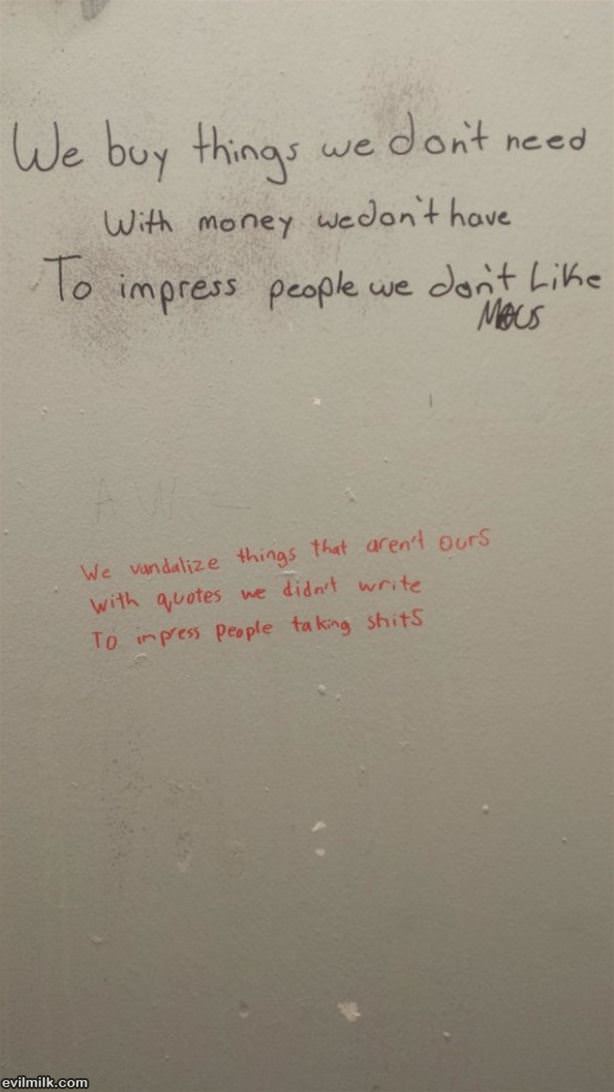 We buy things we don't need
With money we don't have
To impress people we don't Like
We vandalize things that aren't ours
with quotes we didn't write
To impress people taking shits
evilmilk.com